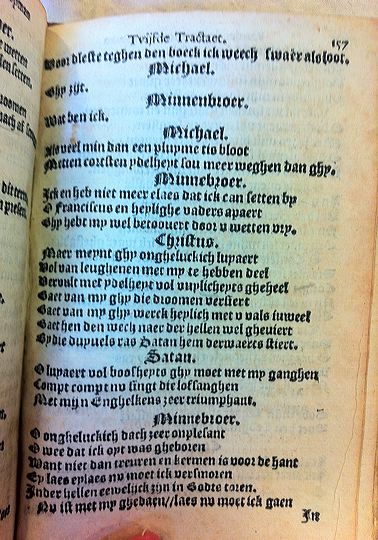 Tvijfste Tractaet. 157
Voor dieste teghen den boeck ick weech swaer als loot.
Michael.
Ghy zijt.
Minnenbroer.
Wat ben ick.
Michael.
Als veel min dan een pluyme tis bloot
Metten cortsten ydelheyt sou meer weghen dan ghy.
Minnebroer.
Ick en heb niet meer elaes dat ick can setten by
O Franciscus en heylighe vaders apaert
Ghy hebt my wel betoovert door v wetten vry.
Christus.
Maer meynt ghy ongheluckich lupaert
Vol van leughenen met my te hebben deel
Vervult met ydelheyt vol vuylicheyts gheheel
Gaet van my ghy die droomen versiert
Gaet van my ghy werck heylich met v vals iuweel
Gaet hen den wech naer der hellen wel gheviert
Ghy die dupuels ras Satan hem derwaerts stiert.
Satan.
O lupaert vol boosheyts ghy moet met my ganghen
Compt compt nv singt die lofsanghen
Met mijn Enghelkens zeer triumphant.
Minnebroer.
O ongheluckich dach zeer onplesant
O wee dat ick oyt was gheboren
Want niet dan treuren en kermen is voor de hant
Ey laes eylaes nv moet ick versmoren
Inder hellen eewelijck zijn in Godts toren.
Nv ist met my ghedaen//laes nv moet ick gaen
In